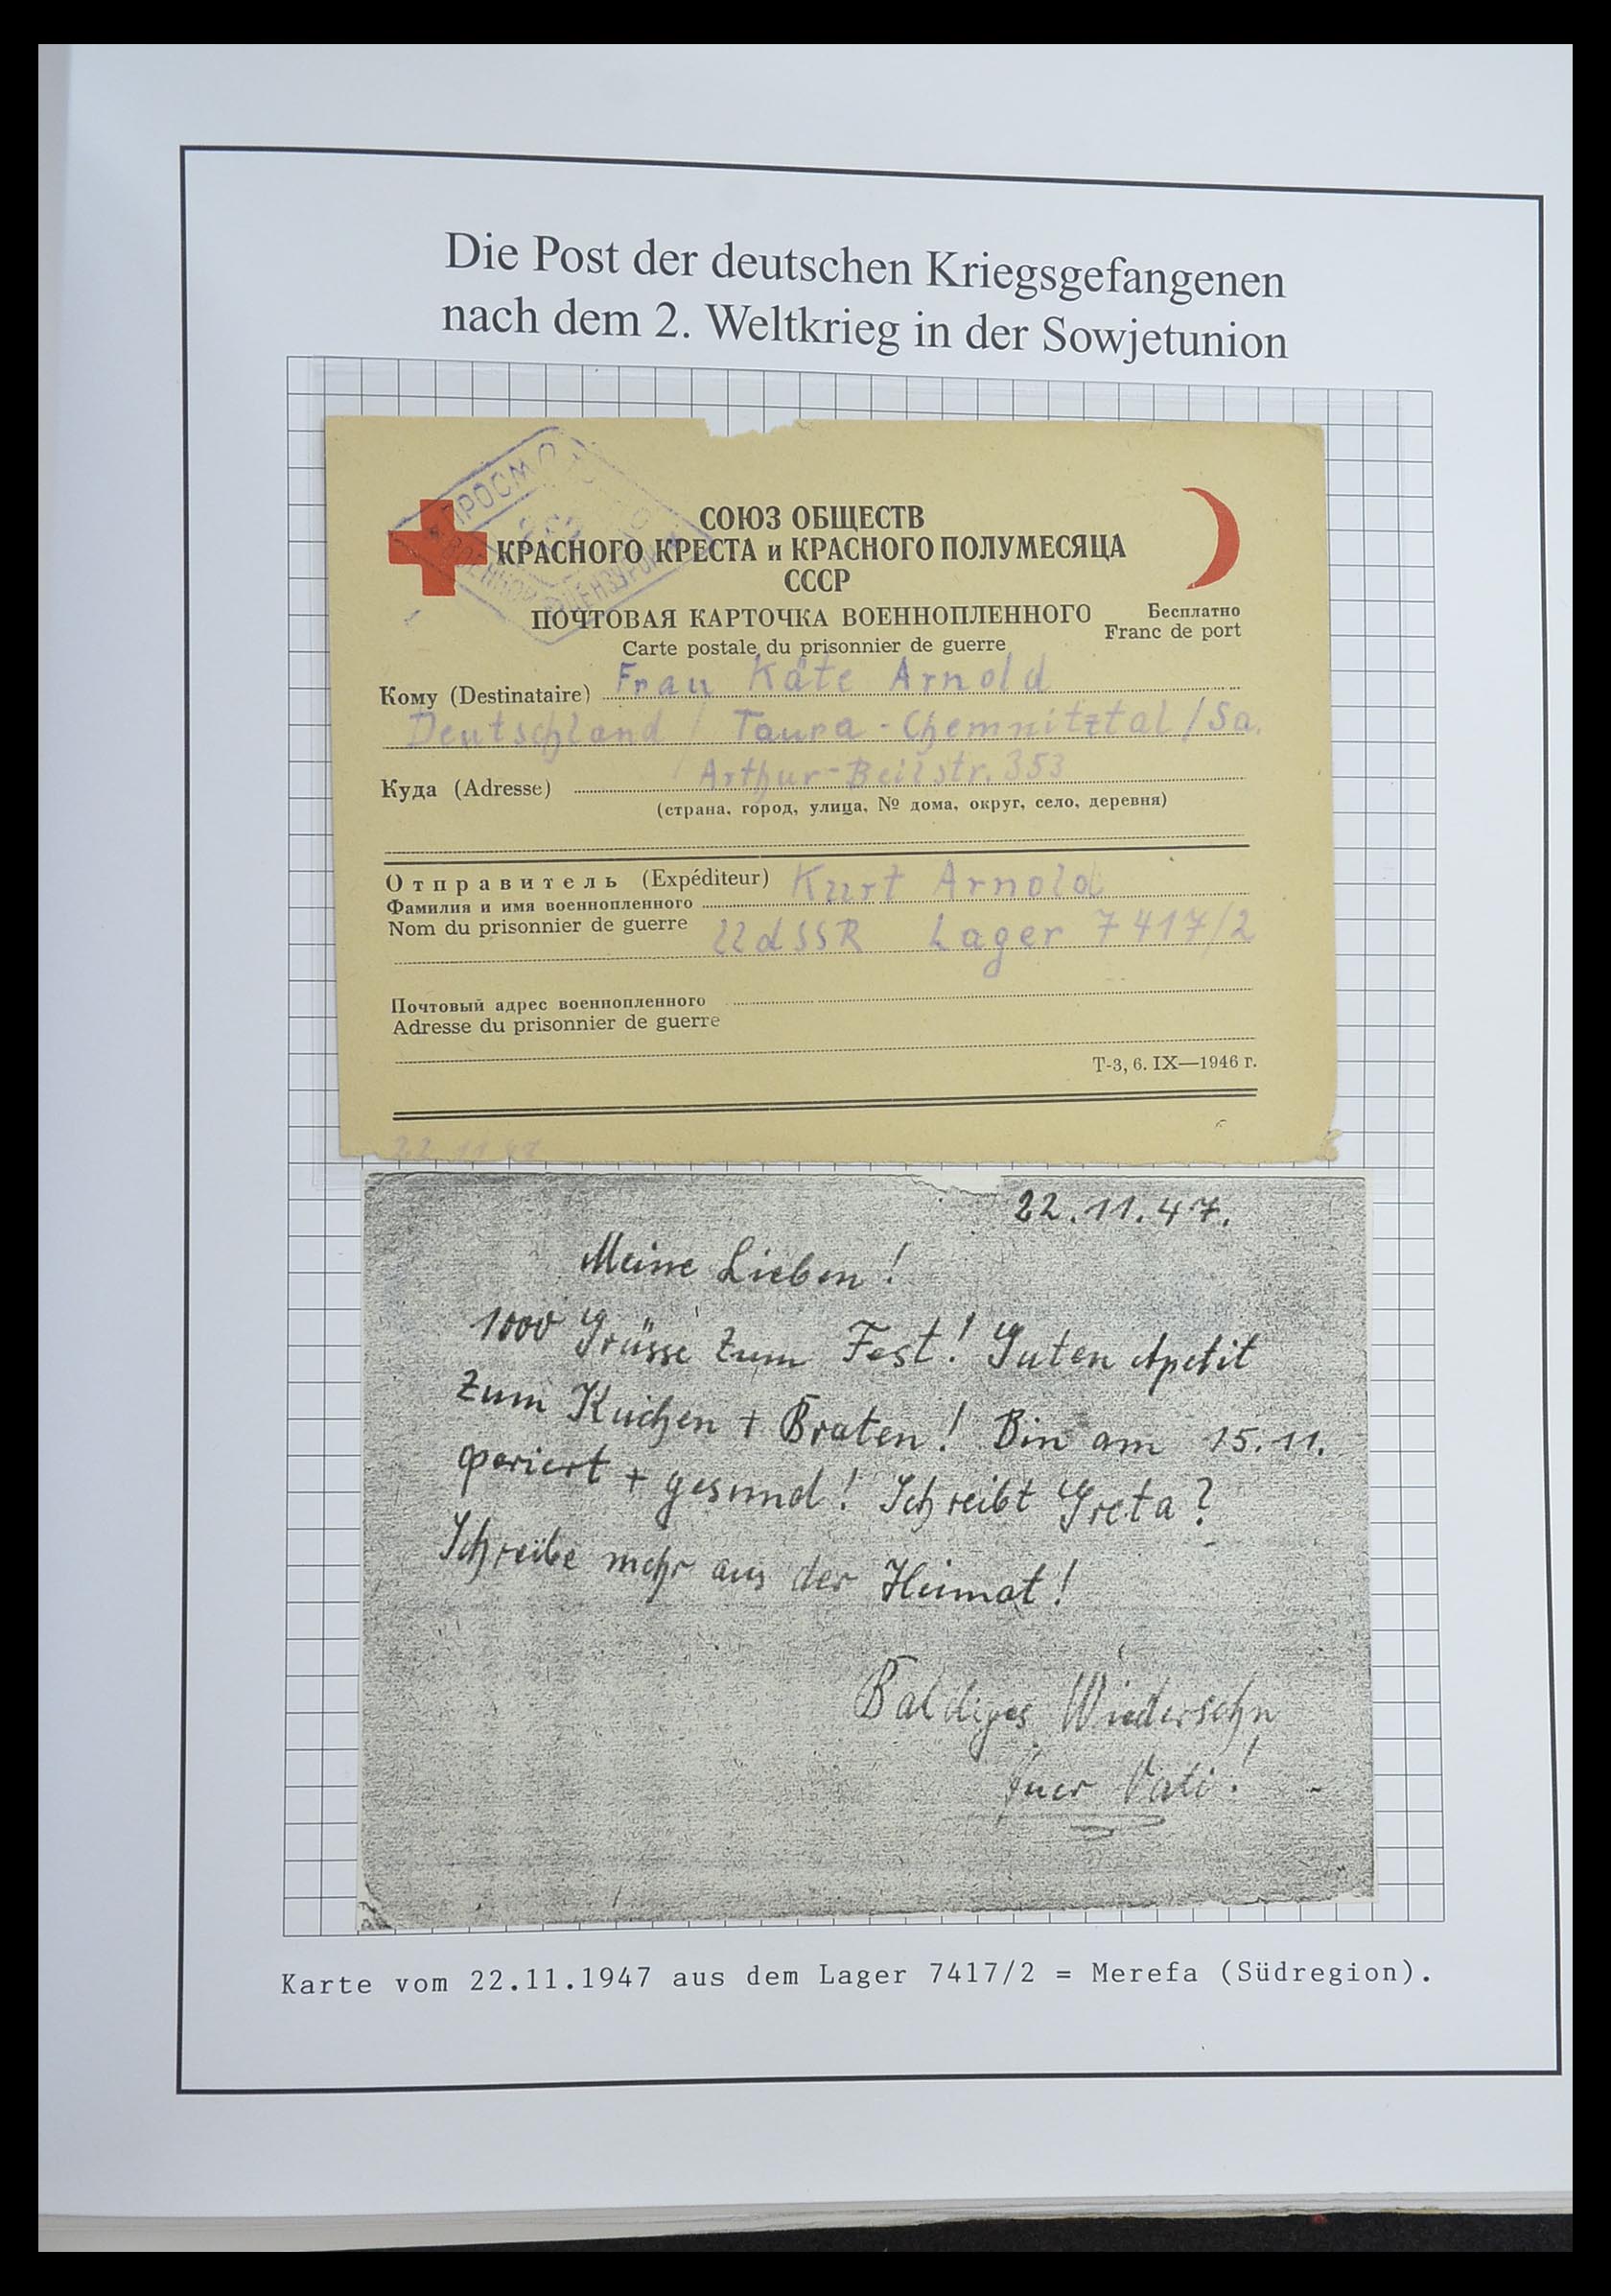 Die Post der deutschen Kriegsgefangenen
nach dem 2. Weltkrieg in der Sowjetunion
СОЮЗ ОБЩЕСТВ
КРАСНОГО КРЕСТА и КРАСНОГО ПОЛУМЕСЯЦА
СССР
ПОЧТОВАЯ КАРТОЧКА ВОЕННОПЛЕННОГО
Carte postale du prisonnier de guerre
Бесплатно
Franc de port
Кому (Destinataire) Frau Käte Arnold
Deutschland / Taura - Chemnitztal / Sa.
Куда (Adresse) Arthur-Beilstr. 353
(страна, город, улица, № дома, округ, село, деревня)
Отправитель (Expéditeur) Kurt Arnold
Фамилия и имя военнопленного
Nom du prisonnier de guerre UdSSR Lager 7417/2
Почтовый адрес военнопленного
Adresse du prisonnier de guerre
Т-3, 6. IX—1946 г.
22.11.47
22.11.47.
Meine Lieben!
1000 Grüsse zum Fest! Guten Apetit
zum Kuchen + Braten! Bin am 15.11.
+ gesund! Schreibt Greta?
Schreibe mehr aus der Heimat!
Baldiges Wiedersehn
Euer Vati!
Karte vom 22.11.1947 aus dem Lager 7417/2 = Merefa (Südregion).